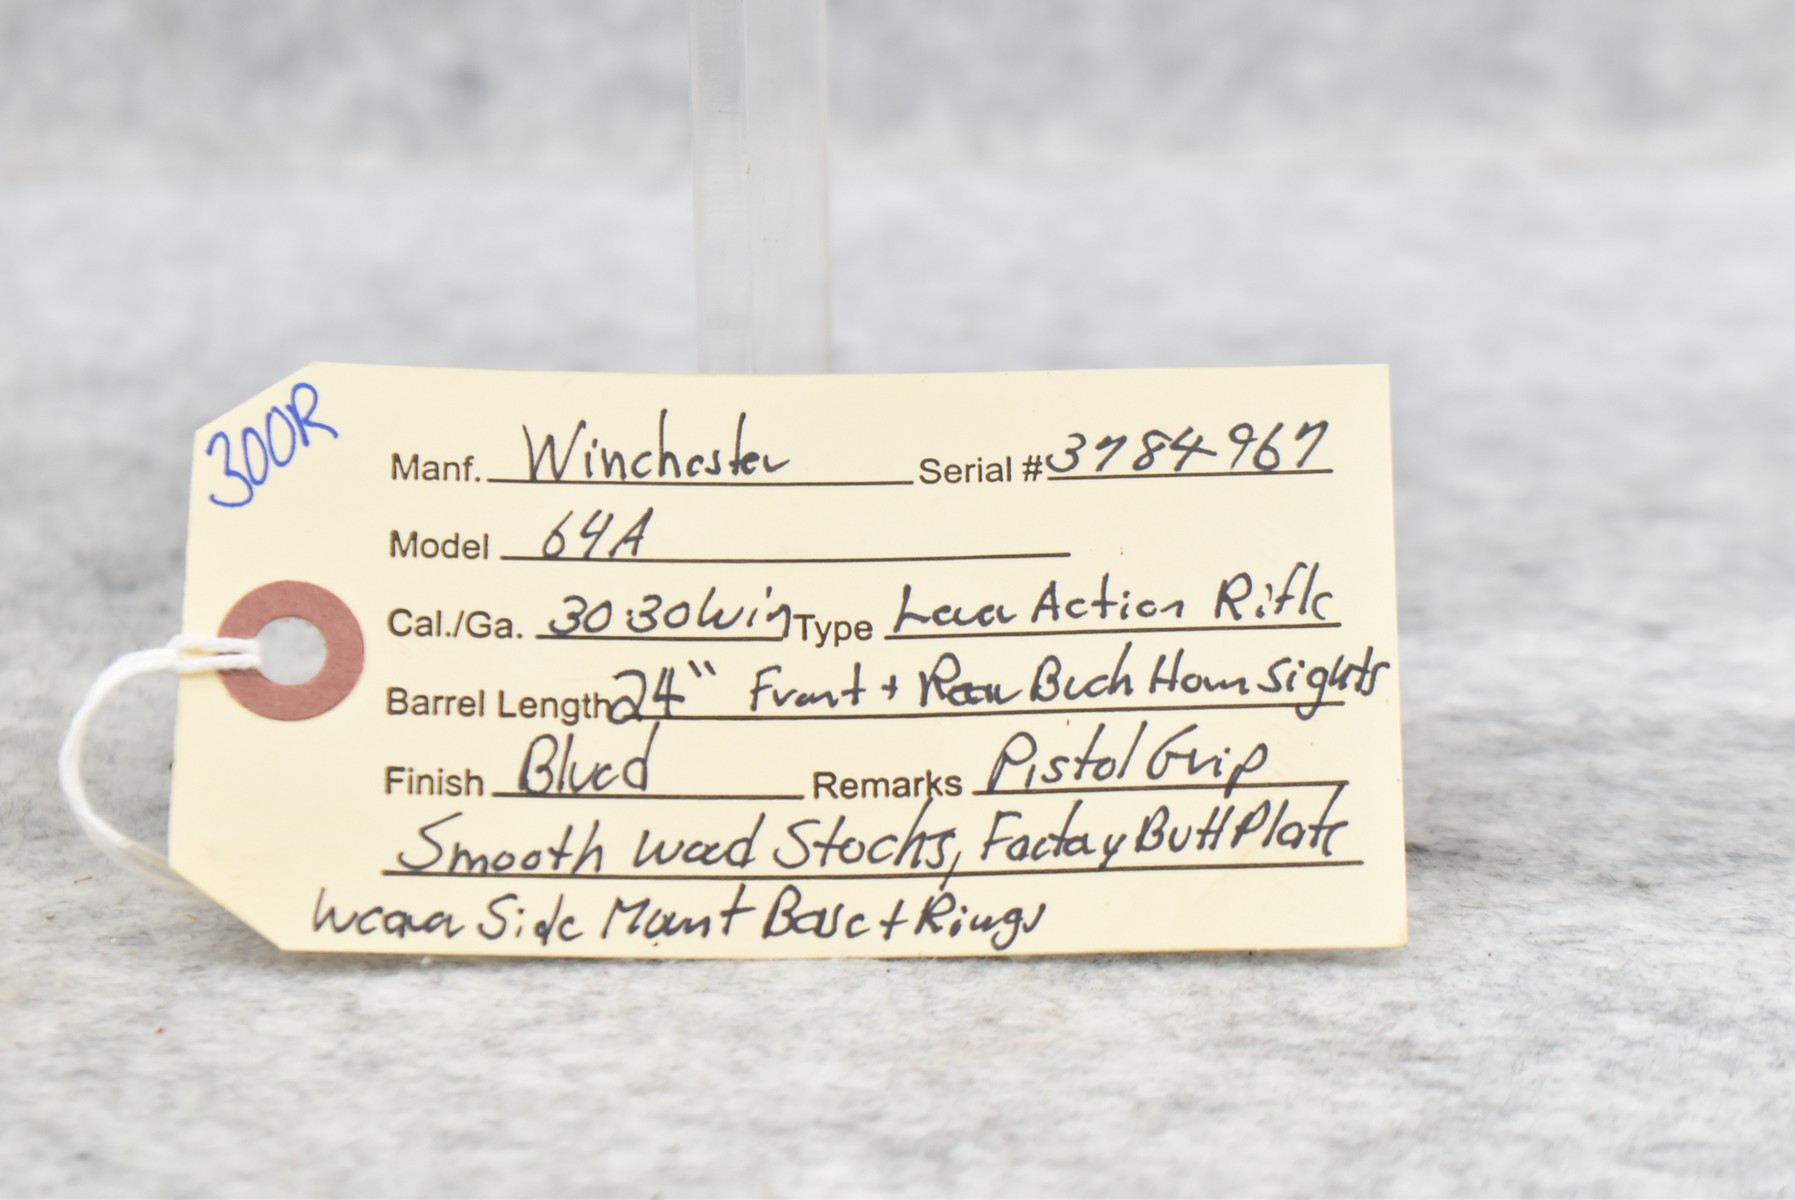 300R
Manf. Winchester Serial # 3784967
Model 64A
Cal./Ga. 30:30 Win Type Lever Action Rifle
Barrel Length 24" Front + Rear Buck Horn Sights
Finish Blued Remarks Pistol Grip
Smooth Wood Stocks, Factory Butt Plate
Weaver Side Mount Base + Rings